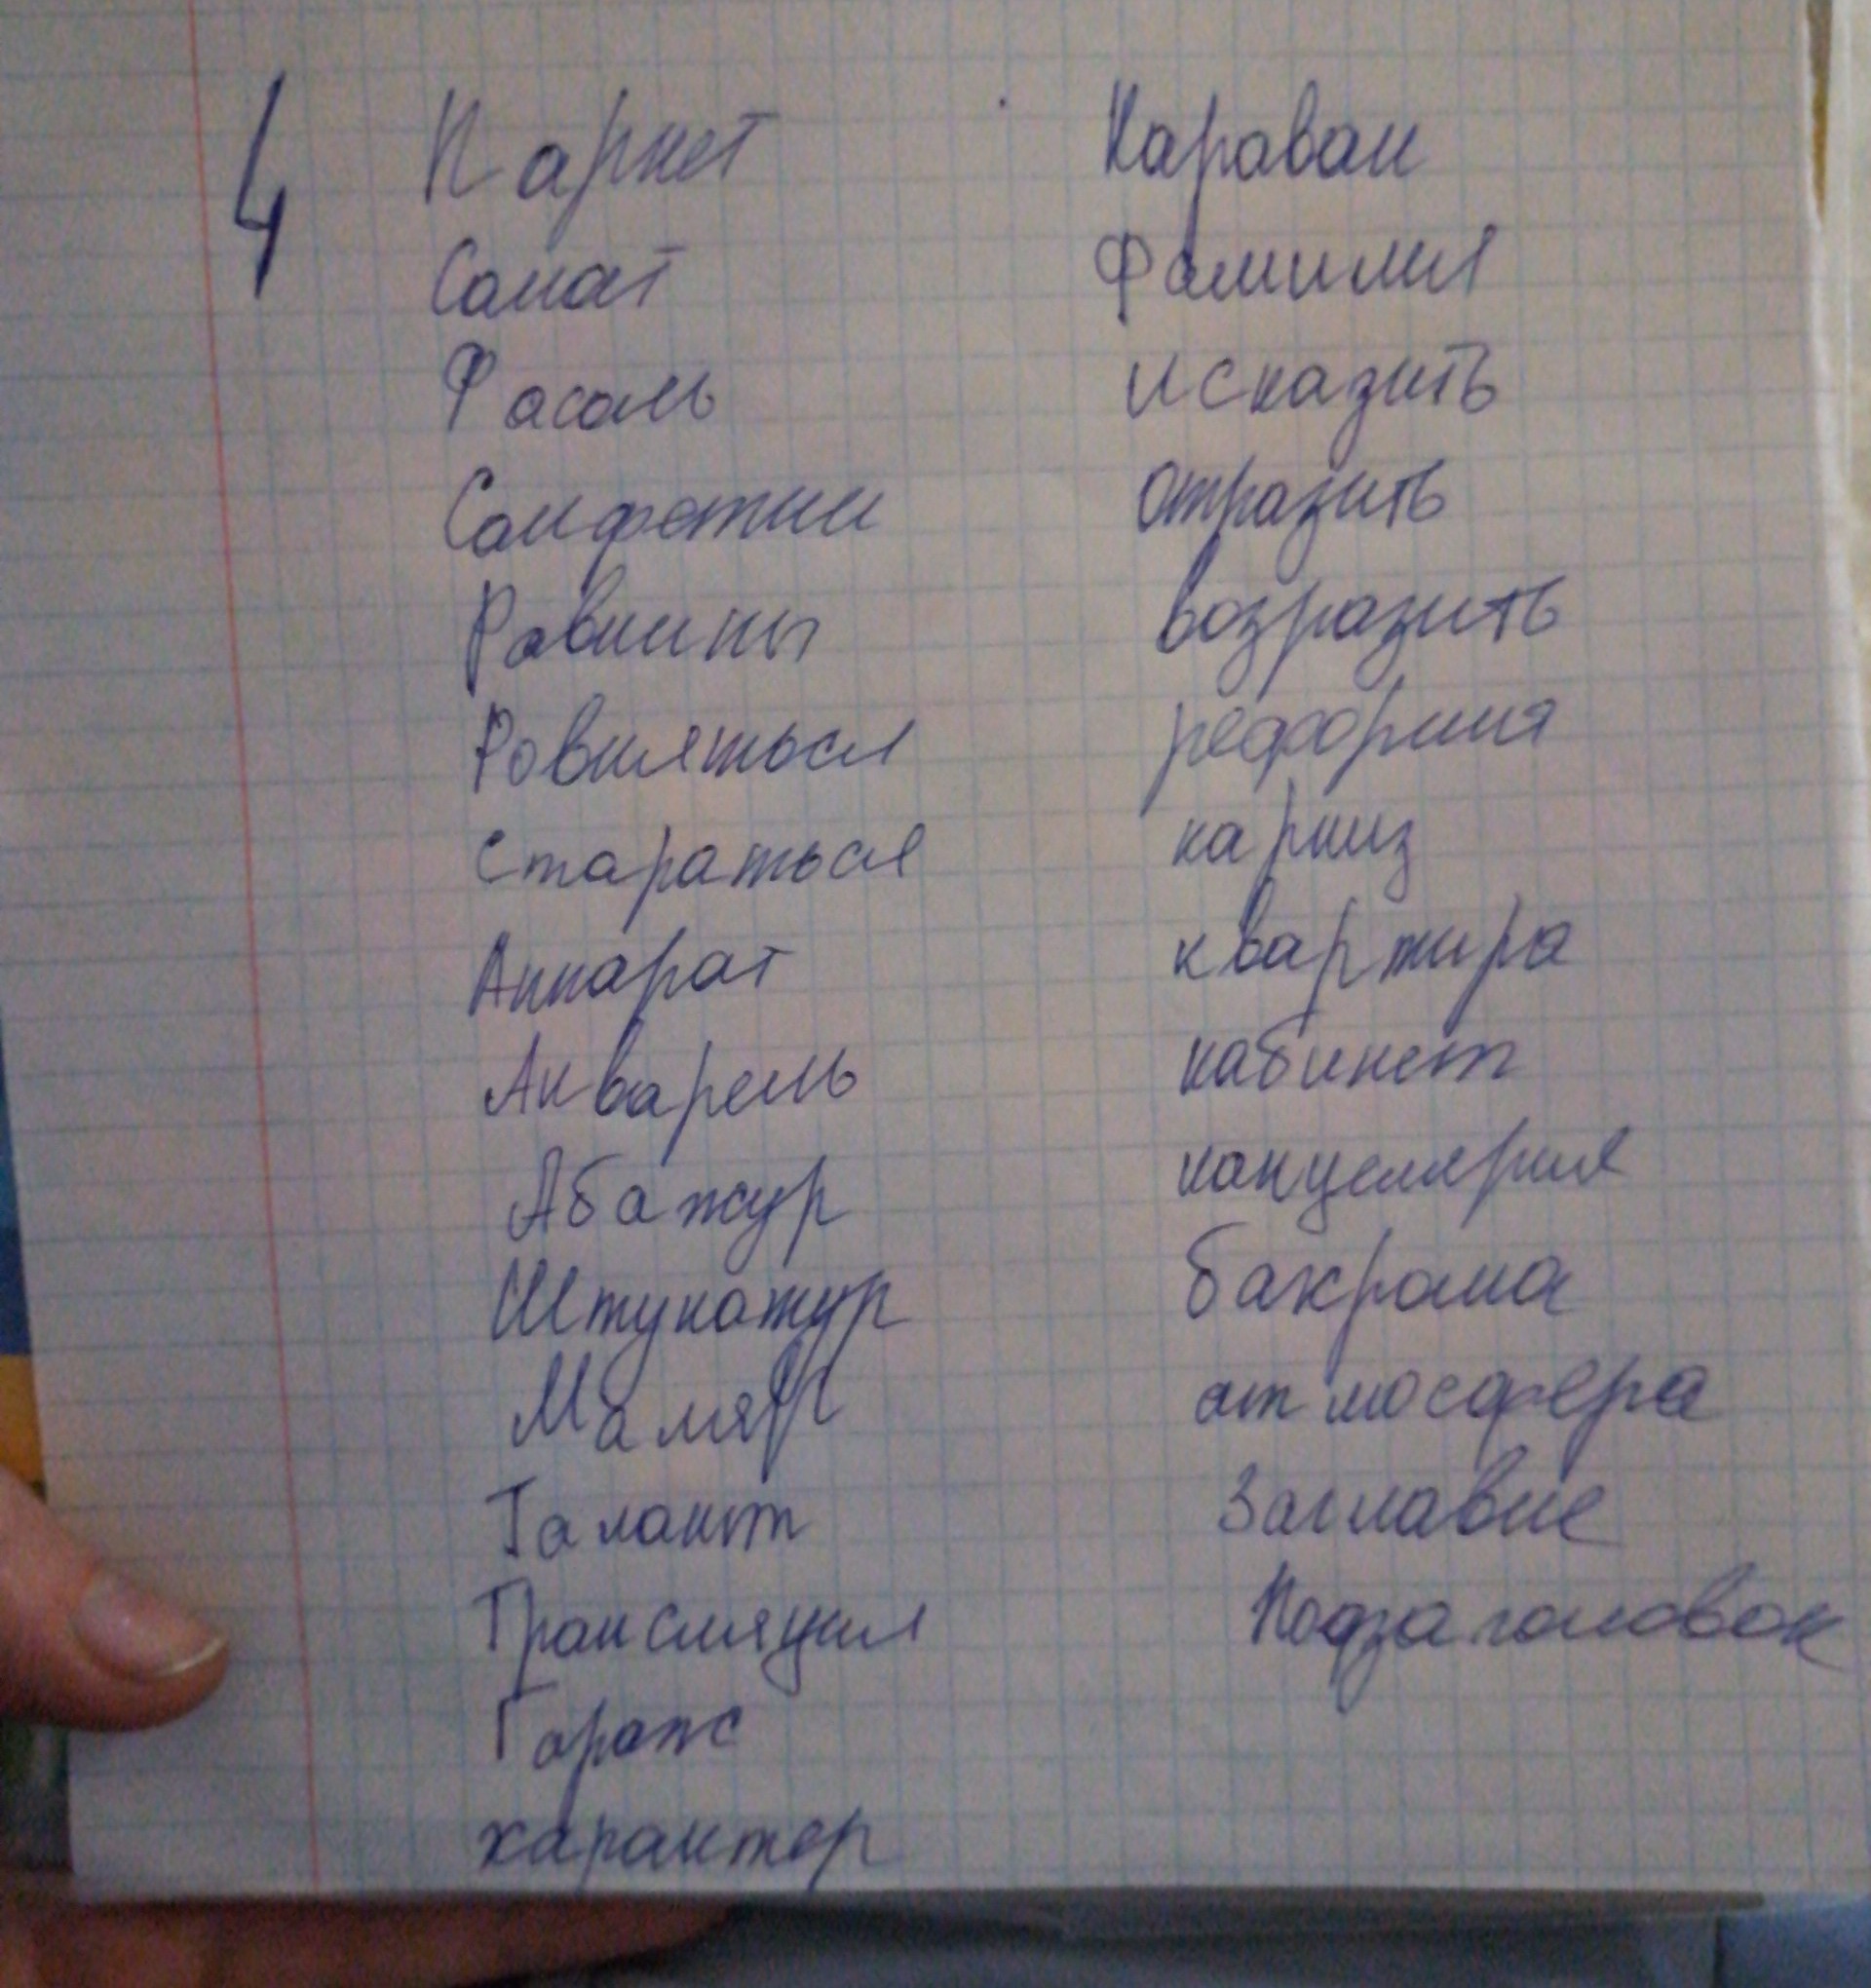 4
Паркет
Салат
Фасоль
Салфетки
Равнины
Ровняться
Стараться
Аппарат
Акварель
Абажур
Штукатур
Маляр
Талант
Трансляция
Гараж
характер
Караван
Фамилия
исказить
отразить
возразить
реформия
карниз
квартира
кабинет
канцелярия
бахрама
атмосфера
Заглавие
Подзаголовок